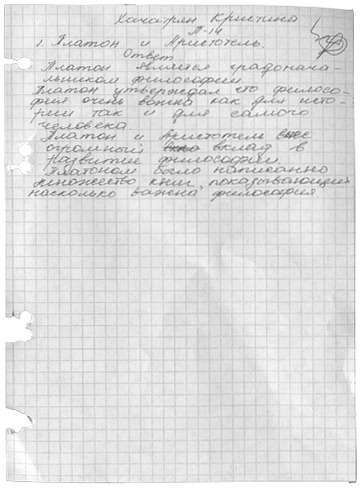 Хачатрян Кристина
П-14
1. Платон и Аристотель.
Ответ
Платон является градонача-
льником философии.
Платон утверждал что филосо-
фия очень важна как для исто-
рии так и для самого
человека
Платон и Аристотель
огромный вклад в
Развитие философии.
Платоном было написанно
множество книг, показывающих
насколько важна философия